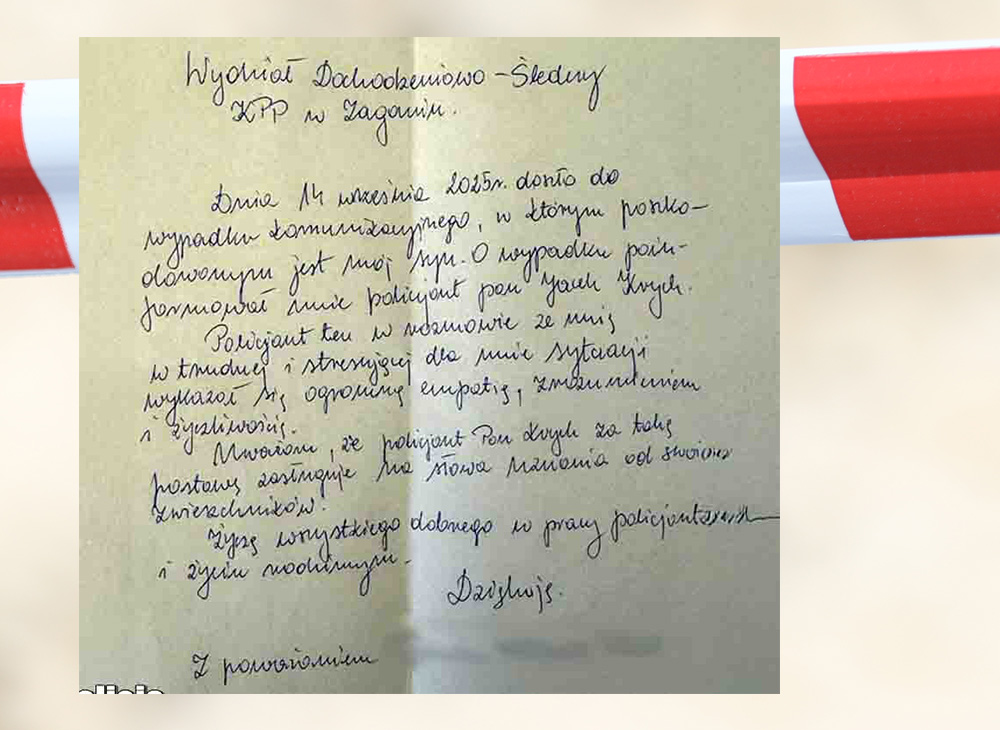 Wydział Dochodzeniowo-Śledczy
KPP w Żaganiu.
Dnia 14 września 2025r. doszło do
wypadku komunikacyjnego, w którym poszko-
dowanym jest mój syn. O wypadku poin-
formował mnie policjant pan Jacek Krych.
Policjant ten w rozmowie ze mną
w trudnej i stresującej dla mnie sytuacji
wykazał się ogromną empatią, zrozumieniem
i życzliwością.
Uważam, że policjant Pan Krych za taką
postawę zasługuje na słowa uznania od swoich
zwierzchników.
Życzę wszystkiego dobrego w pracy policjantów
i życiu rodzinnym.
Dziękuję.
Z poważaniem